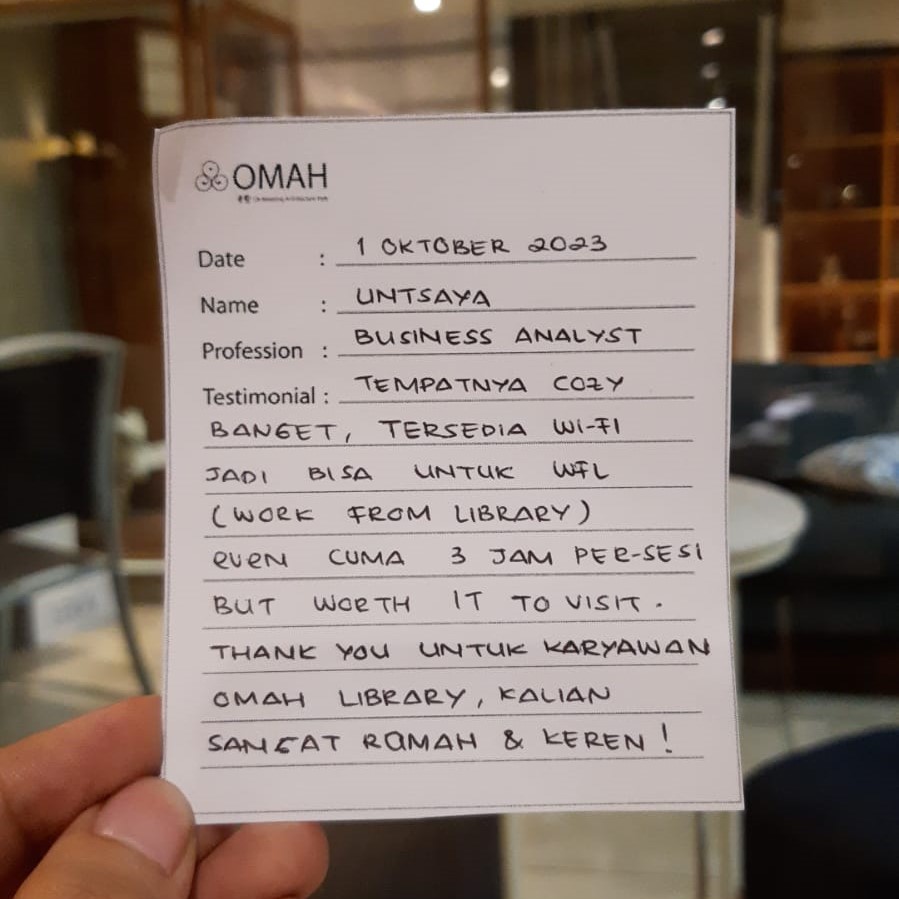 OMAH
Date : 1 OKTOBER 2023
Name : UNTSAYA
Profession : BUSINESS ANALYST
Testimonial : TEMPATNYA COZY
BANGET, TERSEDIA WI-FI
JADI BISA UNTUK WFL
(WORK FROM LIBRARY)
EVEN CUMA 3 JAM PER-SESI
BUT WORTH IT TO VISIT.
THANK YOU UNTUK KARYAWAN
OMAH LIBRARY, KALIAN
SANGAT RAMAH & KEREN!